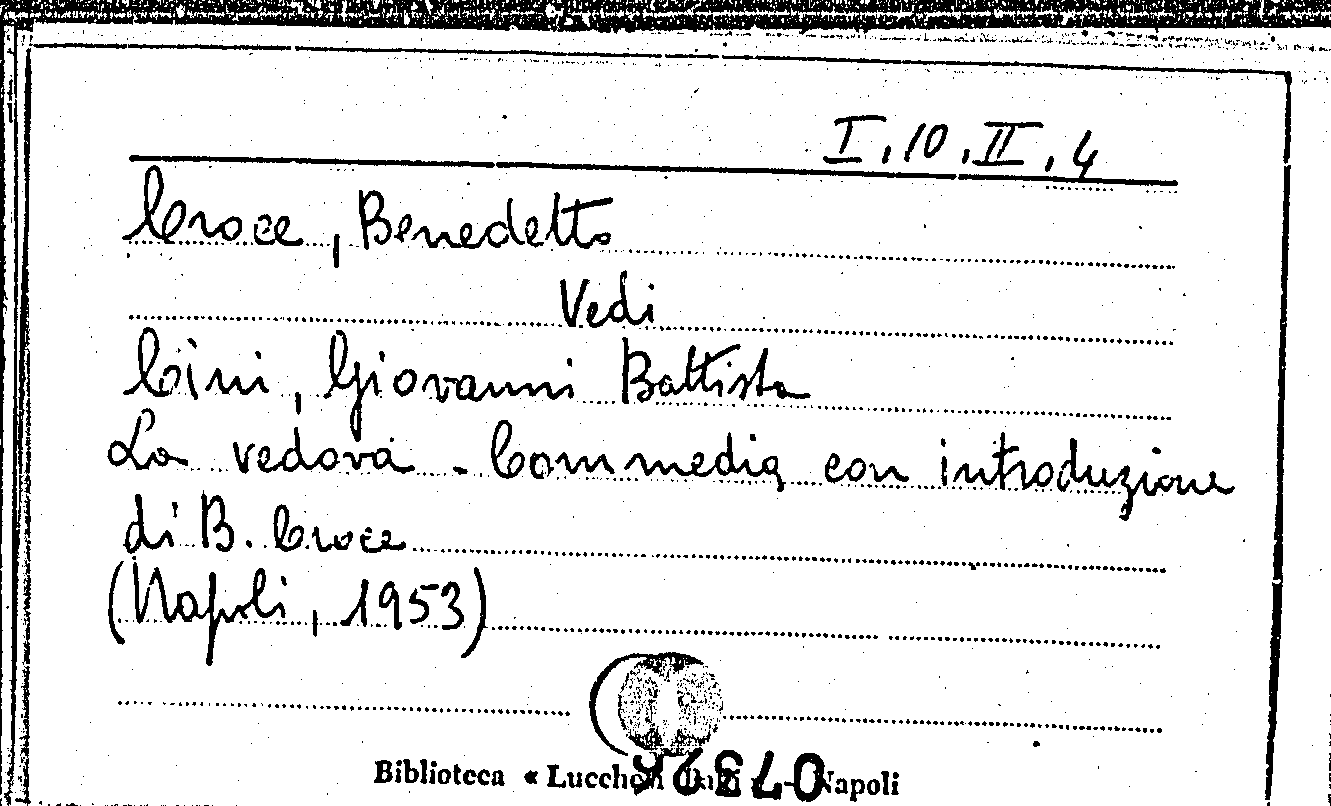 I, 10, II, 4
Croce, Benedetto
Vedi
Cini, Giovanni Battista
La vedova - Commedia con introduzione
di B. Croce
(Napoli, 1953)
Biblioteca « Lucchesi Palli » - Napoli